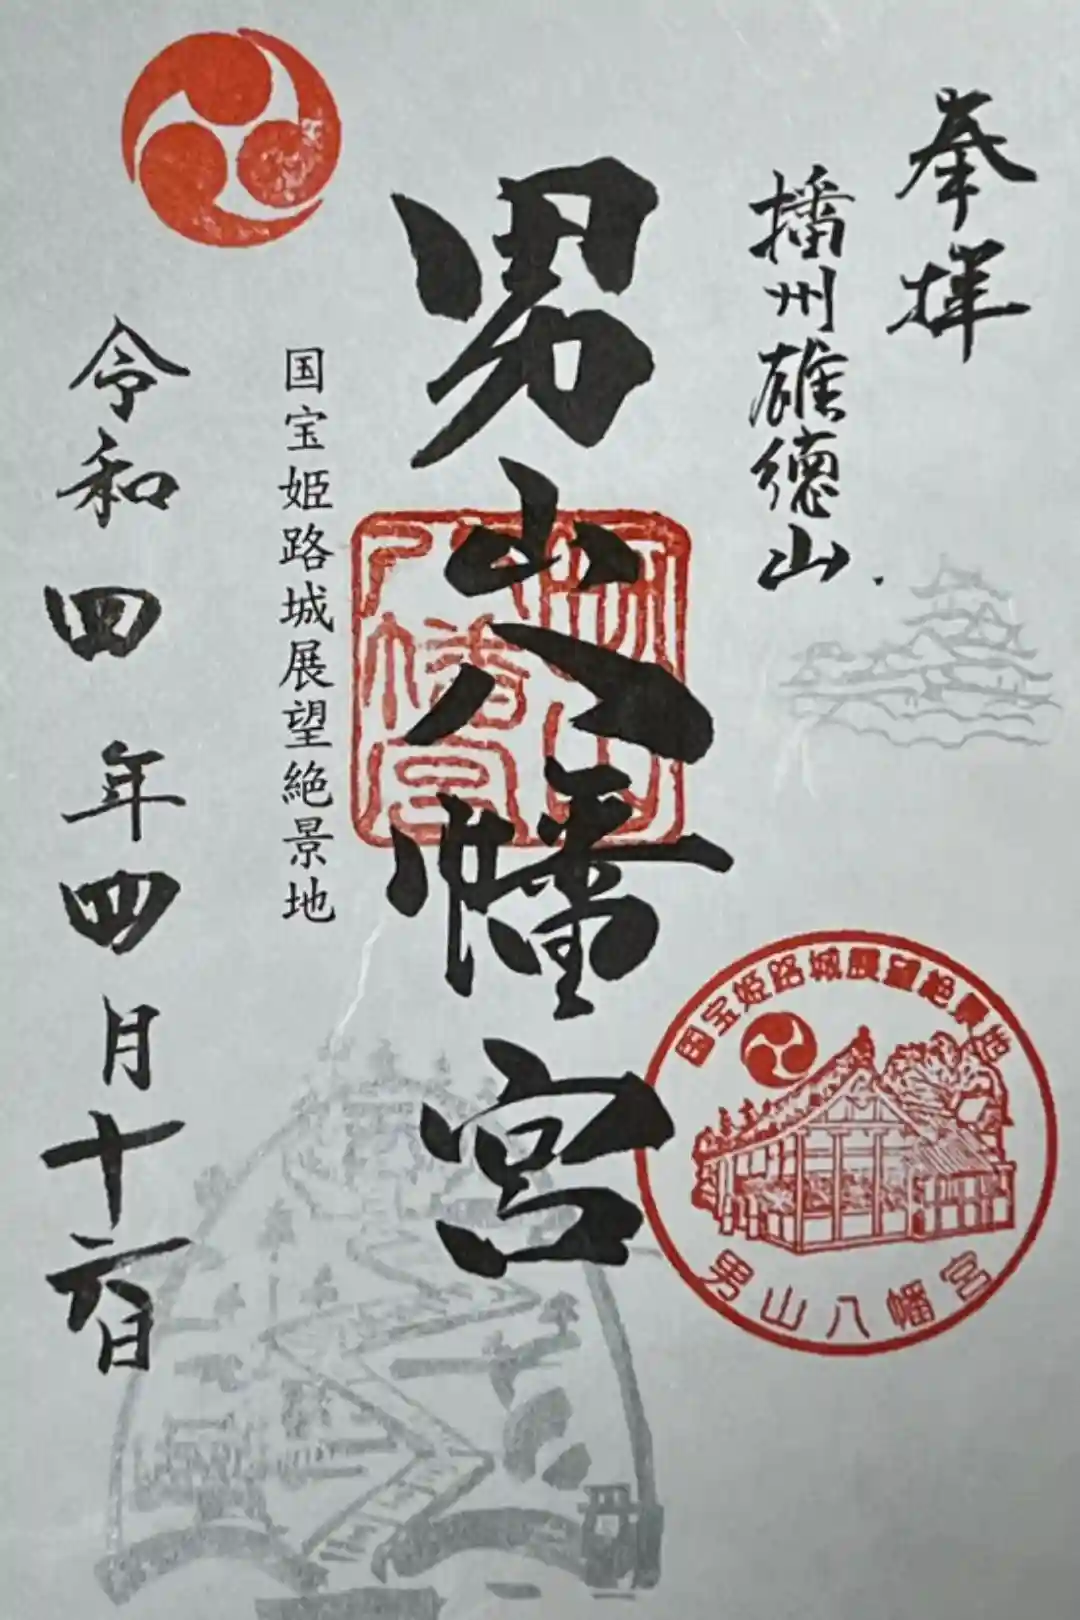 奉拝
播州雄徳山
男山八幡宮
国宝姫路城展望絶景地
男山八幡宮
国宝姫路城展望絶景地
令和四年四月十六日